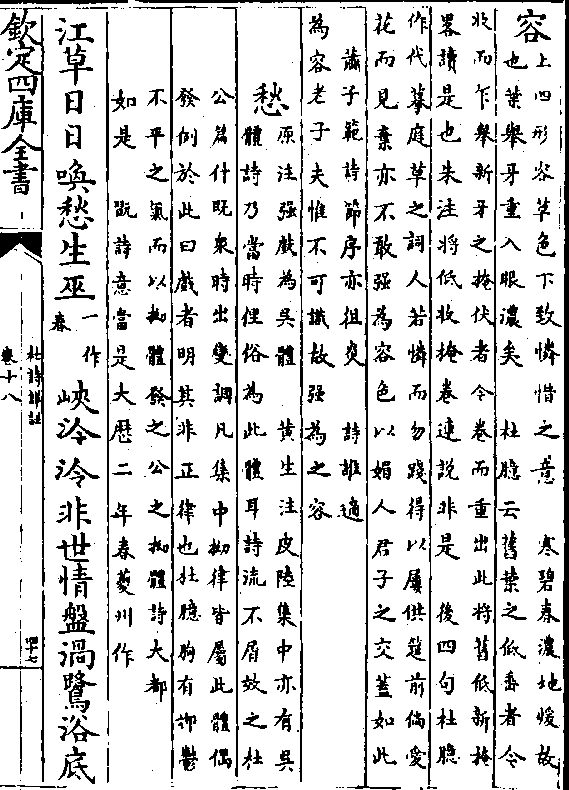 容
上四形容草色下致憐惜之意　寒碧春濃地暖故
也葉舉牙重入眼濃矣　杜臆云舊葉之低垂者今
收而乍舉新牙之掩伏者今卷而重出此將舊低新掩
畧讀是也朱注將低收掩卷連說非是　後四句杜臆
作代庭草之詞人若憐而勿踐得以屢供筵前倘愛
花而見棄亦不敢强為容色以媚人君子之交蓋如此
蕭子範詩節序亦徂炎　詩誰適
為容老子夫惟不可識故强為之容
愁
原注强戲為吳體　黄生注皮陸集中亦有吳
體詩乃當時俚俗為此體耳詩流不屑效之杜
公篇什既衆時出變調凡集中拗律皆屬此體偶
發例於此曰戲者明其非正律也杜臆胸有抑鬱
不平之氣而以拗體發之公之拗體詩大都
如是　翫詩意當是大歷二年春夔州作
江草日日喚愁生巫
一作
春
峽泠泠非世情盤渦鷺浴底
欽定四庫全書
杜詩詳註
卷十八
四十七